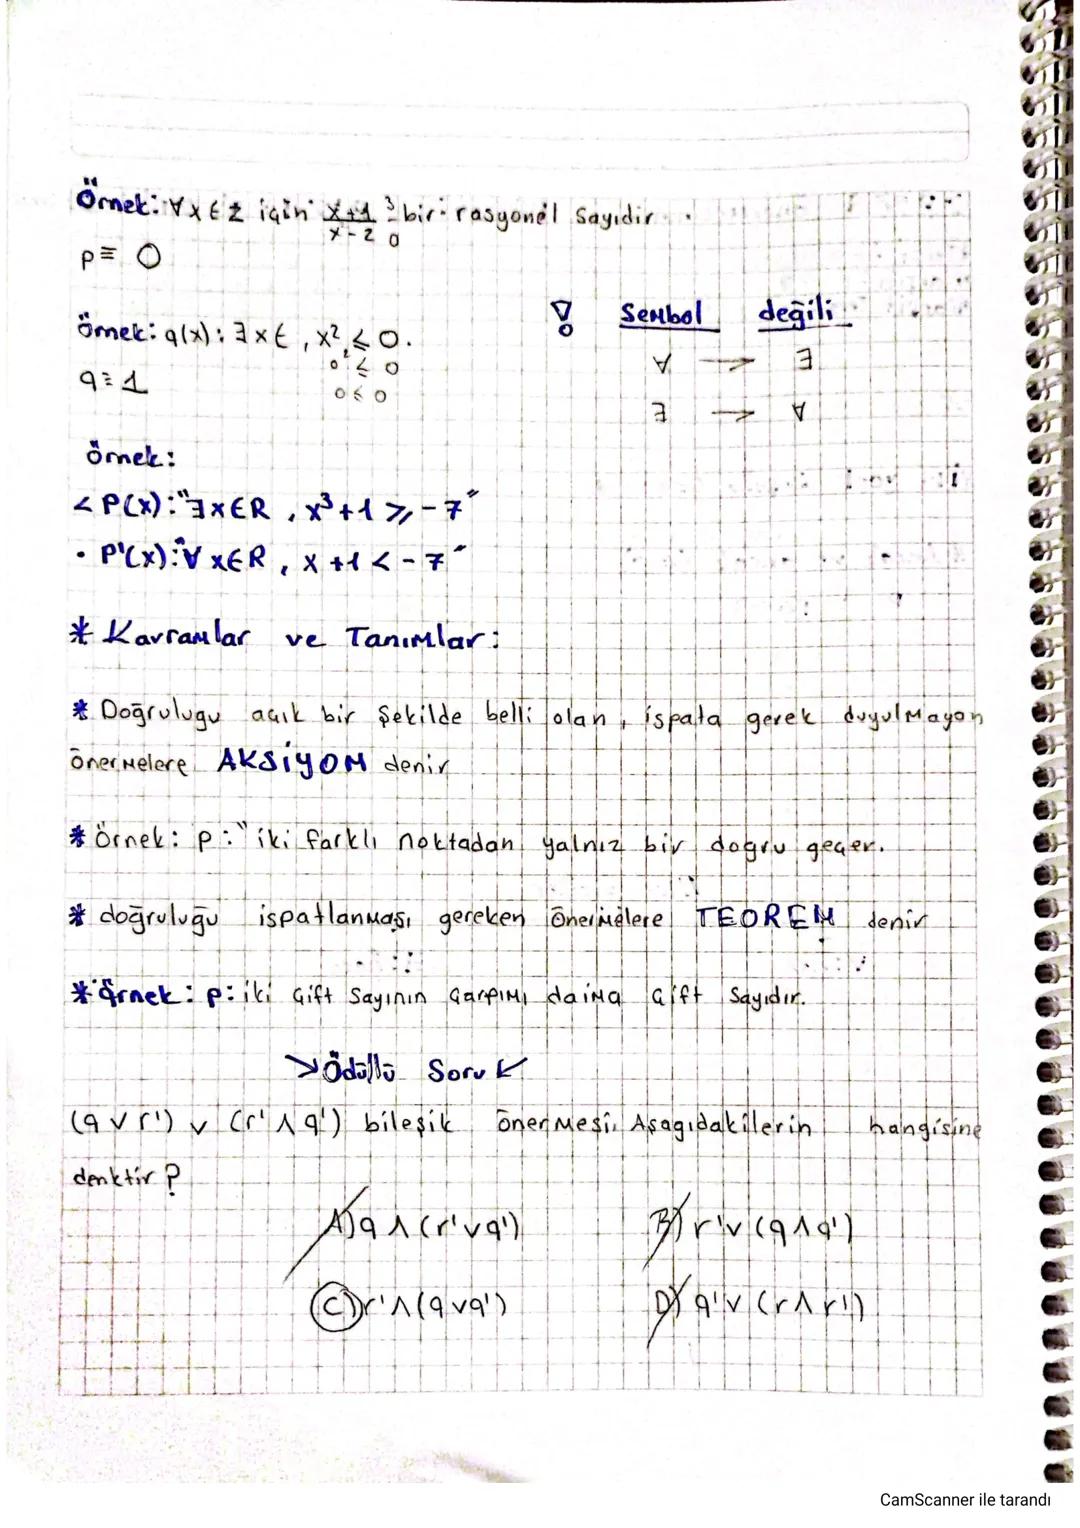 Örnek: ∀x∈Z için x+1/x-2 3/0 bir rasyonel sayıdır.
p≡ 0
! Sembol değili
Örnek: q(x): ∃x∈ , x² ≤ 0.
0² ≤ 0
∀ → ∃
q≡1
0 ≤ 0
∃ → ∀
örnek:
< P(x):"∃x∈R , x³+1 ≥ -7"
• P'(x):"∀ x∈R , x +1 < -7"
* Kavramlar ve Tanımlar:
* Doğrulugu açık bir şekilde belli olan, ispata gerek duyulmayan
önermelere AKSİYOM denir
* Örnek: p:"iki farklı noktadan yalnız bir doğru geçer.
* doğruluğu ispatlanması gereken önermelere TEOREM denir
* örnek: p: iki çift sayının çarpımı daima çift sayıdır.
↘Ödüllü Soru↙
(q ∨ r') ∨ (r' ∧ q') bileşik önermesi Aşagıdakilerin hangisine
denktir?
A) q ∧ (r' ∨ q') B) r' ∨ (q ∧ q')
C) r' ∧ (q ∨ q') D) q' ∨ (r ∧ r')
CamScanner ile tarandı